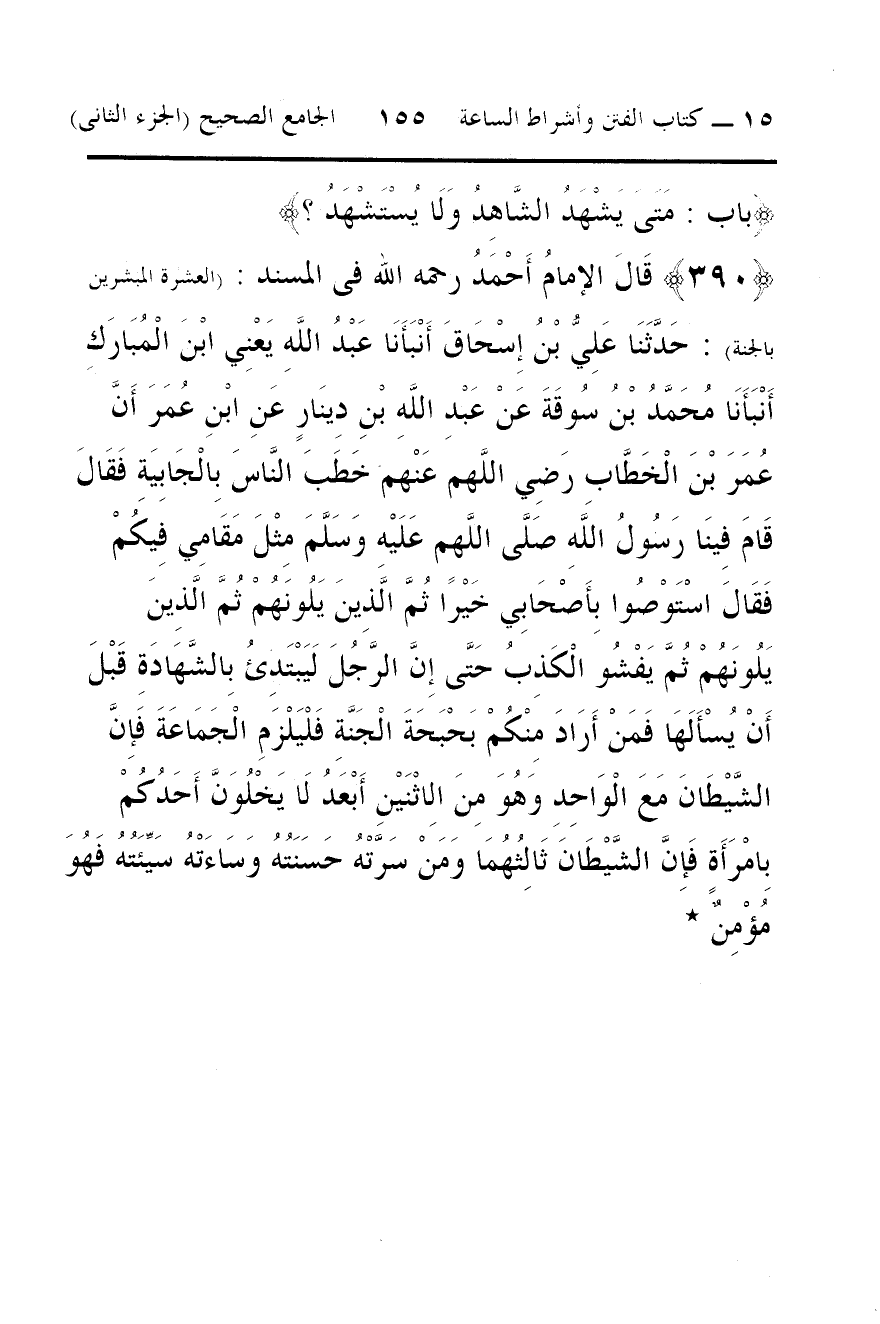 ١٥ ـ كتاب الفتن وأشراط الساعة ١٥٥ الجامع الصحيح (الجزء الثانى)
﴿باب : مَتَى يَشْهَدُ الشَّاهِدُ وَلَا يُسْتَشْهَدُ ؟﴾
﴿٣٩٠﴾ قَالَ الإمامُ أَحْمَدُ رحمه الله فى المسند : (العشرة المبشرين
بالجنة) : حَدَّثَنَا عَلِيُّ بْنُ إِسْحَاقَ أَنْبَأَنَا عَبْدُ اللَّهِ يَعْنِي ابْنَ الْمُبَارَكِ
أَنْبَأَنَا مُحَمَّدُ بْنُ سُوقَةَ عَنْ عَبْدِ اللَّهِ بْنِ دِينَارٍ عَنِ ابْنِ عُمَرَ أَنَّ
عُمَرَ بْنَ الْخَطَّابِ رَضِي اللَّهم عَنْهم خَطَبَ النَّاسَ بِالْجَابِيَةِ فَقَالَ
قَامَ فِينَا رَسُولُ اللَّهِ صَلَّى اللَّهم عَلَيْهِ وَسَلَّمَ مِثْلَ مَقَامِي فِيكُمْ
فَقَالَ اسْتَوْصُوا بِأَصْحَابِي خَيْرًا ثُمَّ الَّذِينَ يَلُونَهُمْ ثُمَّ الَّذِينَ
يَلُونَهُمْ ثُمَّ يَفْشُو الْكَذِبُ حَتَّى إِنَّ الرَّجُلَ لَيَبْتَدِئُ بِالشَّهَادَةِ قَبْلَ
أَنْ يُسْأَلَهَا فَمَنْ أَرَادَ مِنْكُمْ بَحْبَحَةَ الْجَنَّةِ فَلْيَلْزَمِ الْجَمَاعَةَ فَإِنَّ
الشَّيْطَانَ مَعَ الْوَاحِدِ وَهُوَ مِنَ الِاثْنَيْنِ أَبْعَدُ لَا يَخْلُوَنَّ أَحَدُكُمْ
بِامْرَأَةٍ فَإِنَّ الشَّيْطَانَ ثَالِثُهُمَا وَمَنْ سَرَّتْهُ حَسَنَتُهُ وَسَاءَتْهُ سَيِّئَتُهُ فَهُوَ
مُؤْمِنٌ *